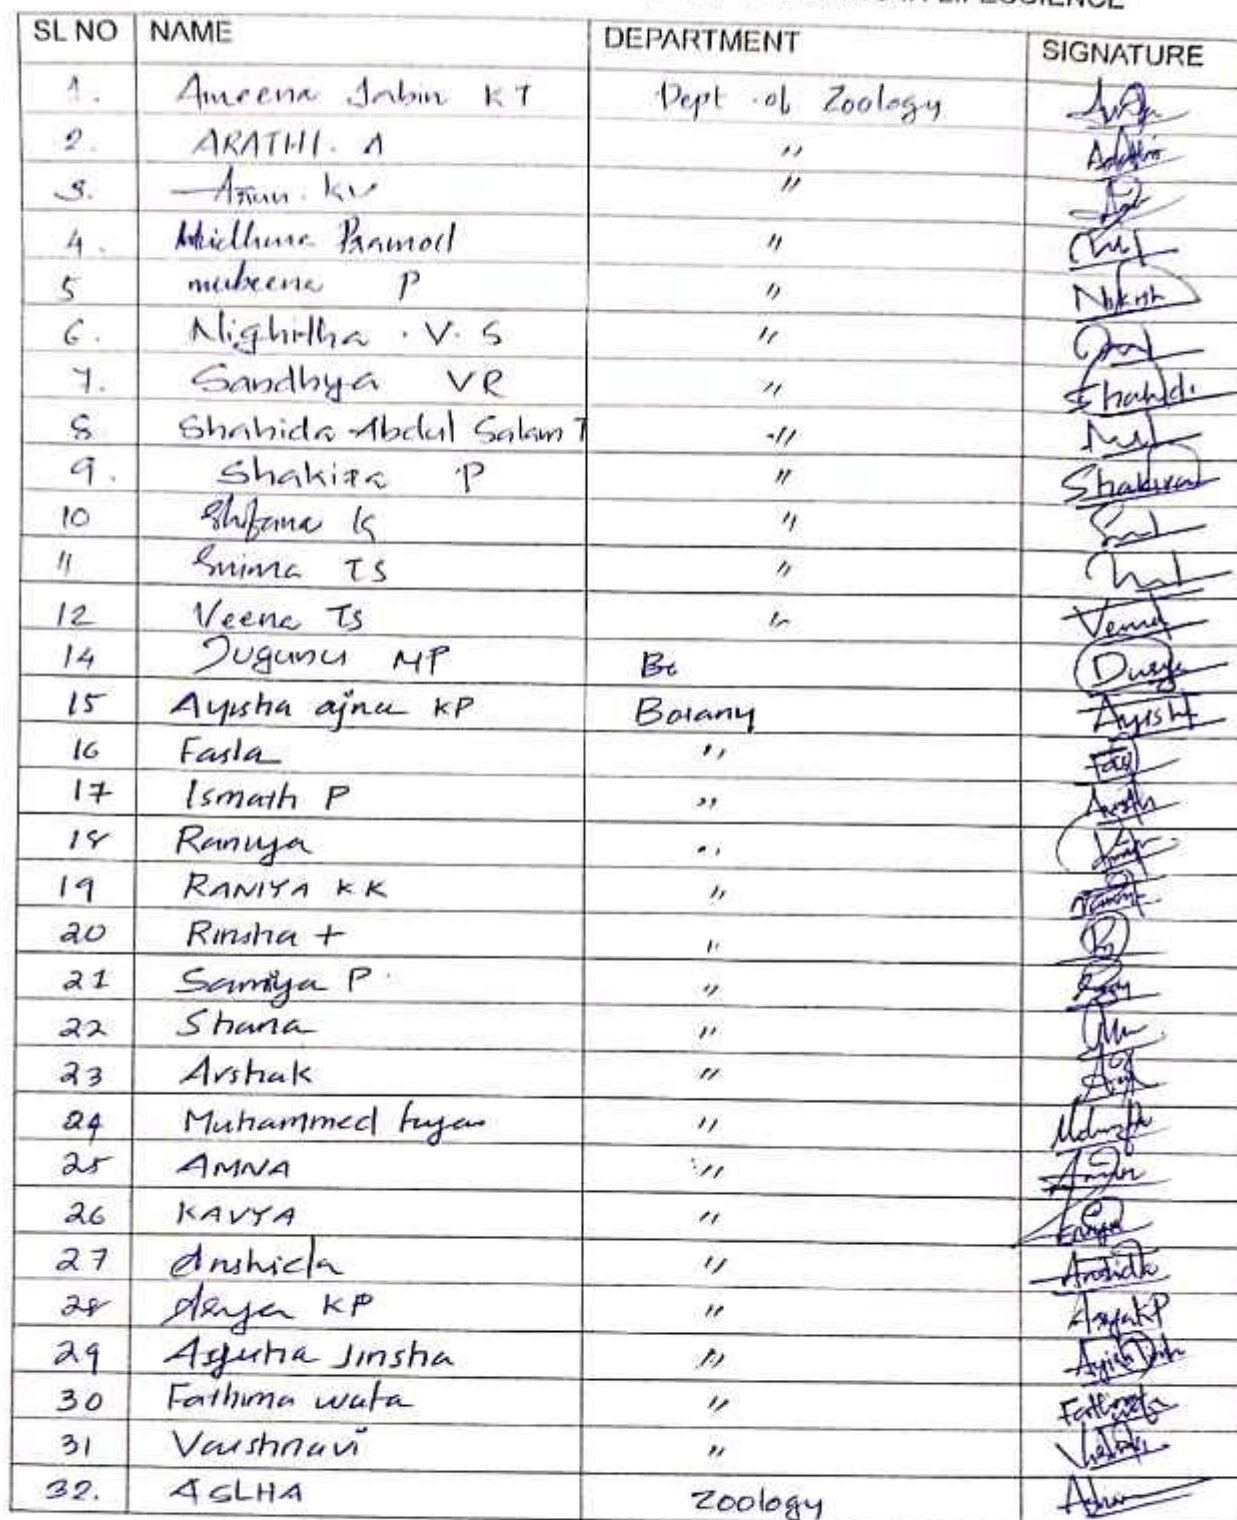 LIFESCIENCE
SL NO NAME DEPARTMENT SIGNATURE
1. Ameena Jabin KT Dept of Zoology
2. ARATHI. A "
3. Arun. KV "
4. Midhuna Pramod "
5 mubeena P "
6. Nighitha . V. S "
7. Sandhya VR " Shahid.
8 Shahida Abdul Salam T "
9. Shakira P " Shakira
10 Shifana K "
11 Smima TS "
12 Veena TS " Veena
14 Jugunu MP Bo Durga
15 Ayisha ajna KP Botany Ayisha
16 Fasla "
17 Ismath P "
18 Ramya "
19 RANIYA KK "
20 Rinsha T "
21 Samiya P "
22 Shana "
23 Arshak "
24 Muhammed "
25 AMNA "
26 KAVYA "
27 Anshida " Anshida
28 Arya KP " Arya KP
29 Jinsha "
30 Fathima wafa " Fathima wafa
31 Vaishnavi "
32. ASLHA Zoology